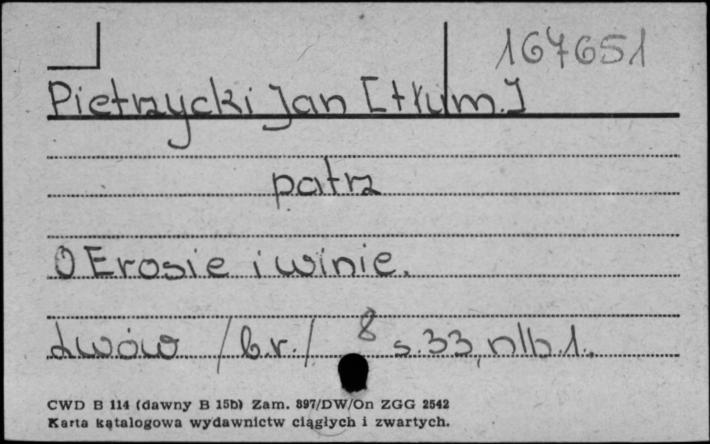 167651
Pietrzycki Jan [tłum.]
patrz
O Erosie i winie.
Lwów /b.r./ 8 s.33, nlb.1.
CWD B 114 (dawny B 15b) Zam. 897/DW/On ZGG 2542
Karta katalogowa wydawnictw ciągłych i zwartych.